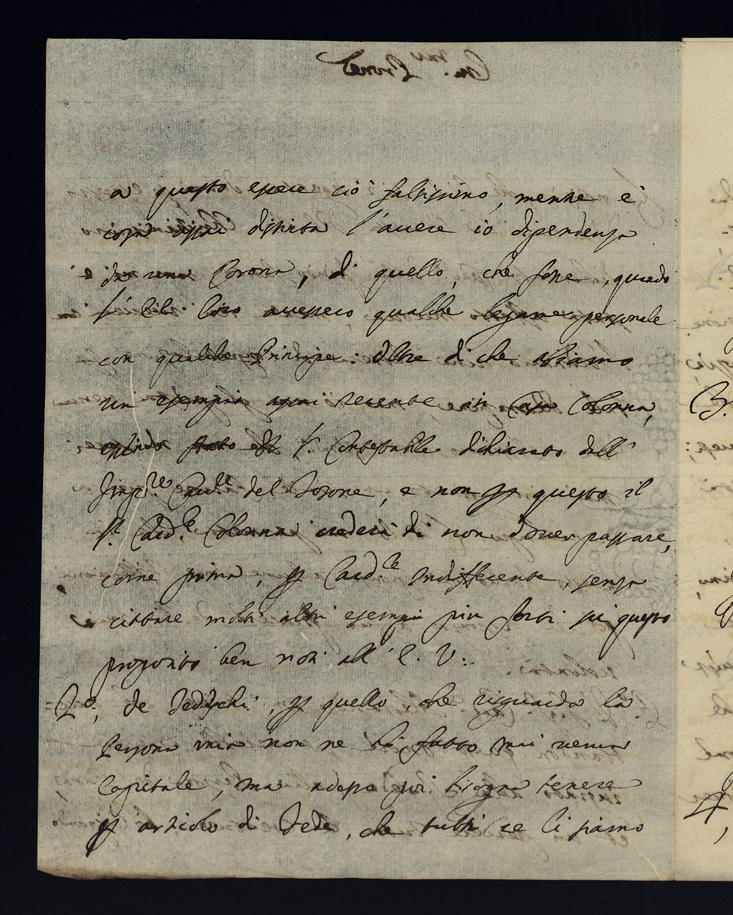 a questo essere ciò falsissimo, mentre è
cosa assai distinta l'avere io dipendenza
da una Corona, di quello, che fosse, quando
li loro avessero qualche legame personale
con qualche Principe: oltre di che abbiamo
un esempio recente in Casa Colonna,
stato il Sr. Contestabile dichiarato dall'
del Tosone, e non per questo il
Sr. Card.le Colonna credesi di non dover passare,
come prima, per Card.le indifferente, senza
cittare molti altri esempi più forti su questo
proposito ben noti all' E. V:.
2.o, de Tedeschi per quello che risguarda la
Persona mia non ne hò fatto mai verun
Capitale, ma adesso poi bisogna tenere
per articolo di Fede, che tutti ce li siamo